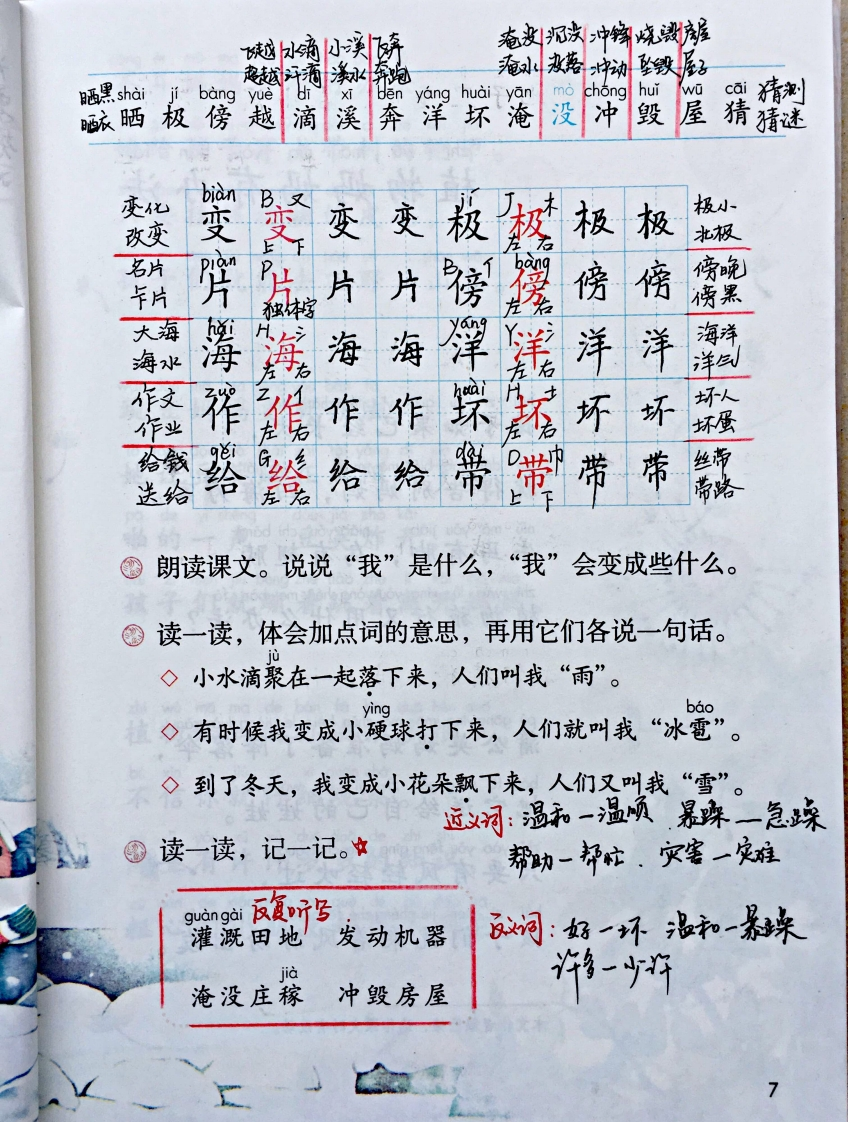 飞越 水滴 小溪 飞奔 淹没 沉没 冲锋 烧毁 房屋
超越 汗滴 溪水 奔跑 淹水 没落 冲动 坠毁 屋子
晒黑 shài jí bàng yuè dī xī bēn yáng huài yān mò chōng huǐ wū cāi 猜测
晒衣 晒 极 傍 越 滴 溪 奔 洋 坏 淹 没 冲 毁 屋 猜 猜谜
biàn B 又 jí J 木
变化 变 变 变 变 极 极 极 极 极小
改变 上 下 左 右 北极
piàn P B 亻 bàng
名片 片 片 片 片 傍 傍 傍 傍 傍晚
卡片 独体字 左 右 傍黑
hǎi H 氵 yáng Y 氵
大海 海 海 海 海 洋 洋 洋 洋 海洋
海水 左 右 左 右 洋气
zuò Z 亻 huài H 土
作文 作 作 作 作 坏 坏 坏 坏 坏人
作业 左 右 左 右 坏蛋
gěi G 纟 dài D 巾
给钱 给 给 给 给 带 带 带 带 丝带
送给 左 右 上 下 带路
朗读课文。说说“我”是什么，“我”会变成些什么。
读一读，体会加点词的意思，再用它们各说一句话。
jù
◇ 小水滴聚在一起落下来，人们叫我“雨”。
yìng báo
◇ 有时候我变成小硬球打下来，人们就叫我“冰雹”。
◇ 到了冬天，我变成小花朵飘下来，人们又叫我“雪”。
近义词：温和—温顺 暴躁—急躁
帮助—帮忙、灾害—灾难
读一读，记一记。☆
guàn gài 反复听写
灌溉田地 发动机器
jià
淹没庄稼 冲毁房屋
反义词：好—坏 温和—暴躁
许多—少许
7